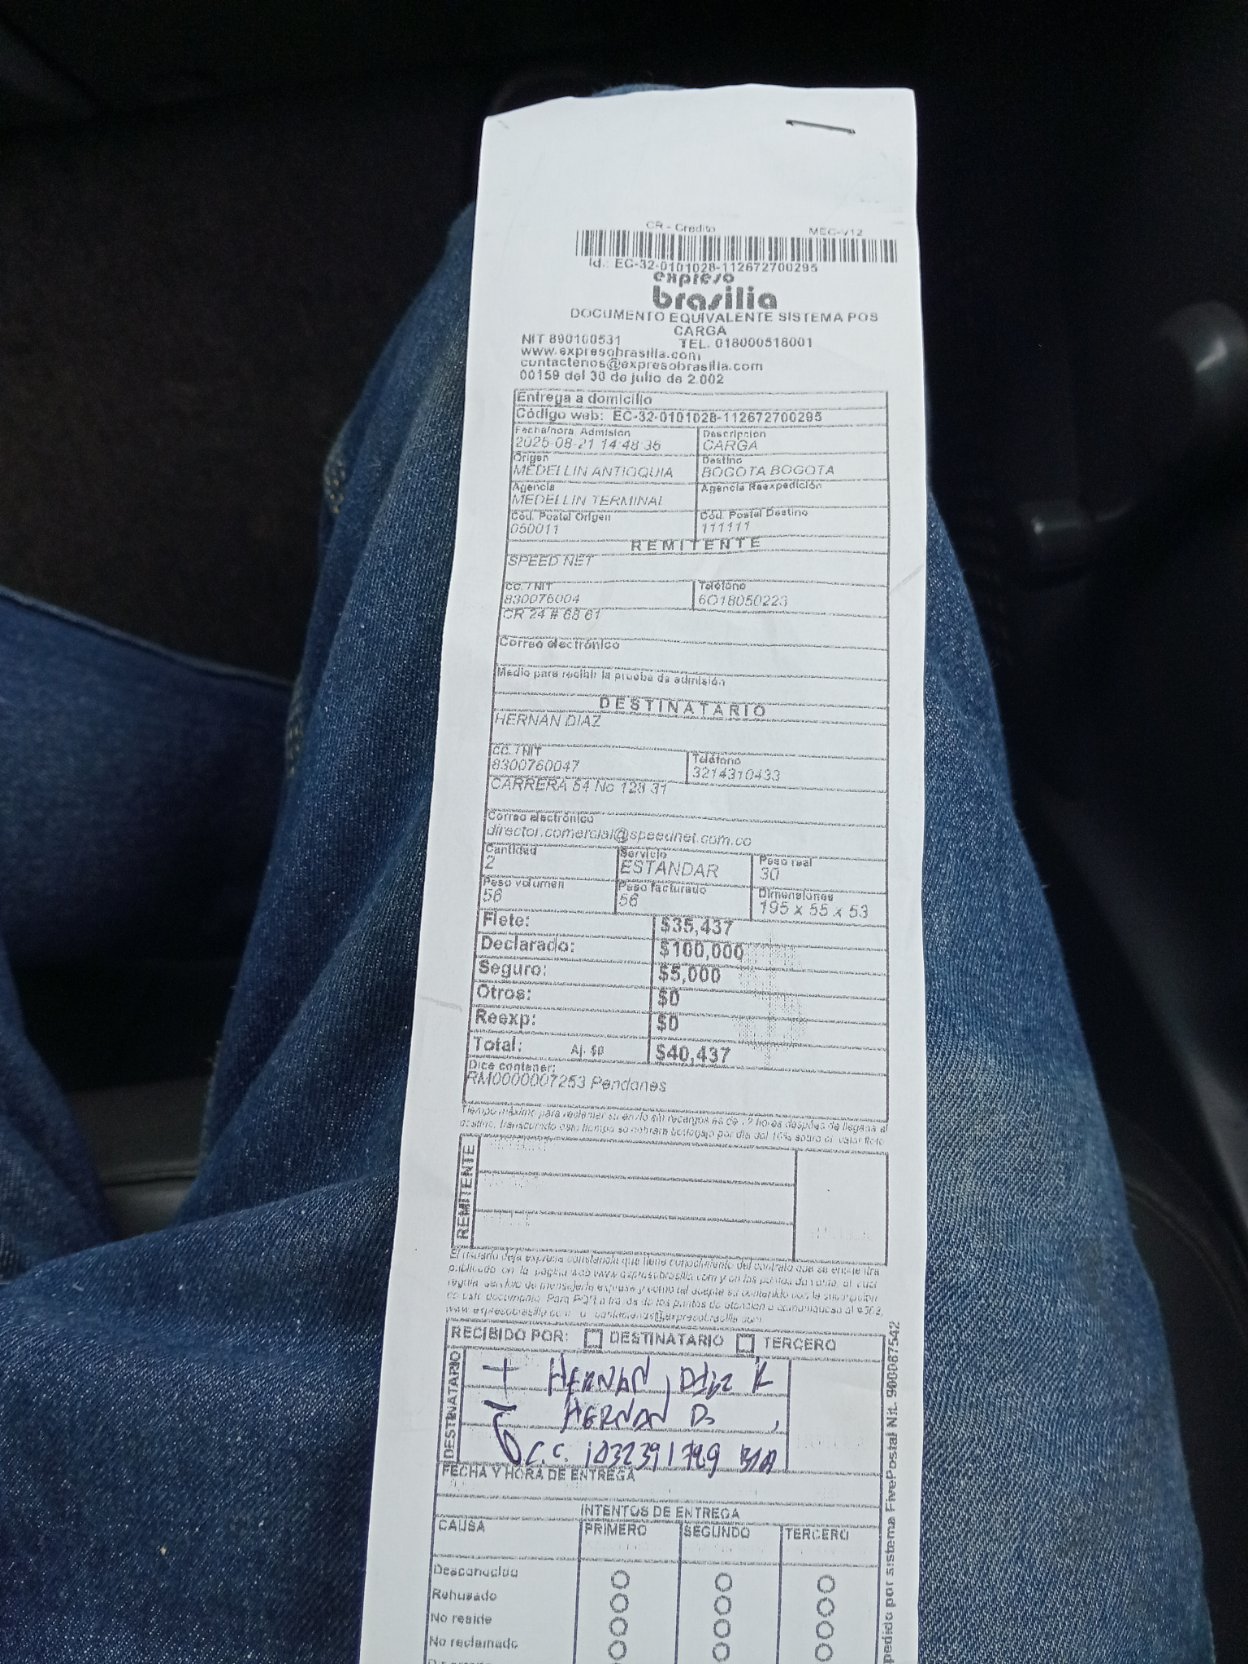 CR - Credito MEC-V12
Id.: EC-32-0101028-112672700295
expreso
brasilia
DOCUMENTO EQUIVALENTE SISTEMA POS
CARGA
NIT 890100531 TEL. 018000518001
www.expresobrasilia.com
contactenos@expresobrasilia.com
00159 del 30 de julio de 2.002
Entrega a domicilio
Código web: EC-32-0101028-112672700295
Fecha/hora Admision Descripcion
2025-08-21 14:48:36 CARGA
Origen Destino
MEDELLIN ANTIOQUIA BOGOTA BOGOTA
Agencia Agencia Reexpedición
MEDELLIN TERMINAL
Cód. Postal Origen Cód. Postal Destino
050011 111111
REMITENTE
SPEED NET
CC. / NIT Teléfono
830076004 6018050223
CR 24 # 68 61
Correo electrónico
Medio para recibir la prueba de admisión
DESTINATARIO
HERNAN DIAZ
CC. / NIT Teléfono
8300760047 3214310433
CARRERA 54 No 128 31
Correo electrónico
director.comercial@speednet.com.co
Cantidad Servicio Peso real
2 ESTANDAR 30
Peso volumen Peso facturado Dimensiones
56 56 195 x 55 x 53
Flete: $35,437
Declarado: $100,000
Seguro: $5,000
Otros: $0
Reexp: $0
Total: Aj. $0 $40,437
Dice contener:
RM0000007253 Pendones
Tiempo máximo para reclamar su envío sin recargos es de 72 horas después de llegada a
destino, transcurrido este tiempo se cobrará bodegaje por día del 10% sobre el valor flete
REMITENTE
El usuario deja expresa constancia que tiene conocimiento del contrato que se encuentra
publicado en la página web www.expresobrasilia.com y en los puntos de venta, el cual
regula servicio de mensajería expresa y como tal acepta su contenido con la suscripción
de este documento. Para PQR a través de los puntos de atención o comuníquese al
www.expresobrasilia.com o contactenos@expresobrasilia.com
RECIBIDO POR: DESTINATARIO TERCERO
DESTINATARIO
HERNAN DIAZ
HERNAN D.
C.C. 1032391789
FECHA Y HORA DE ENTREGA
INTENTOS DE ENTREGA
CAUSA PRIMERO SEGUNDO TERCERO
Desconocido
Rehusado
No reside
No reclamado
pedido por sistema FivePostal Nit. 900087542